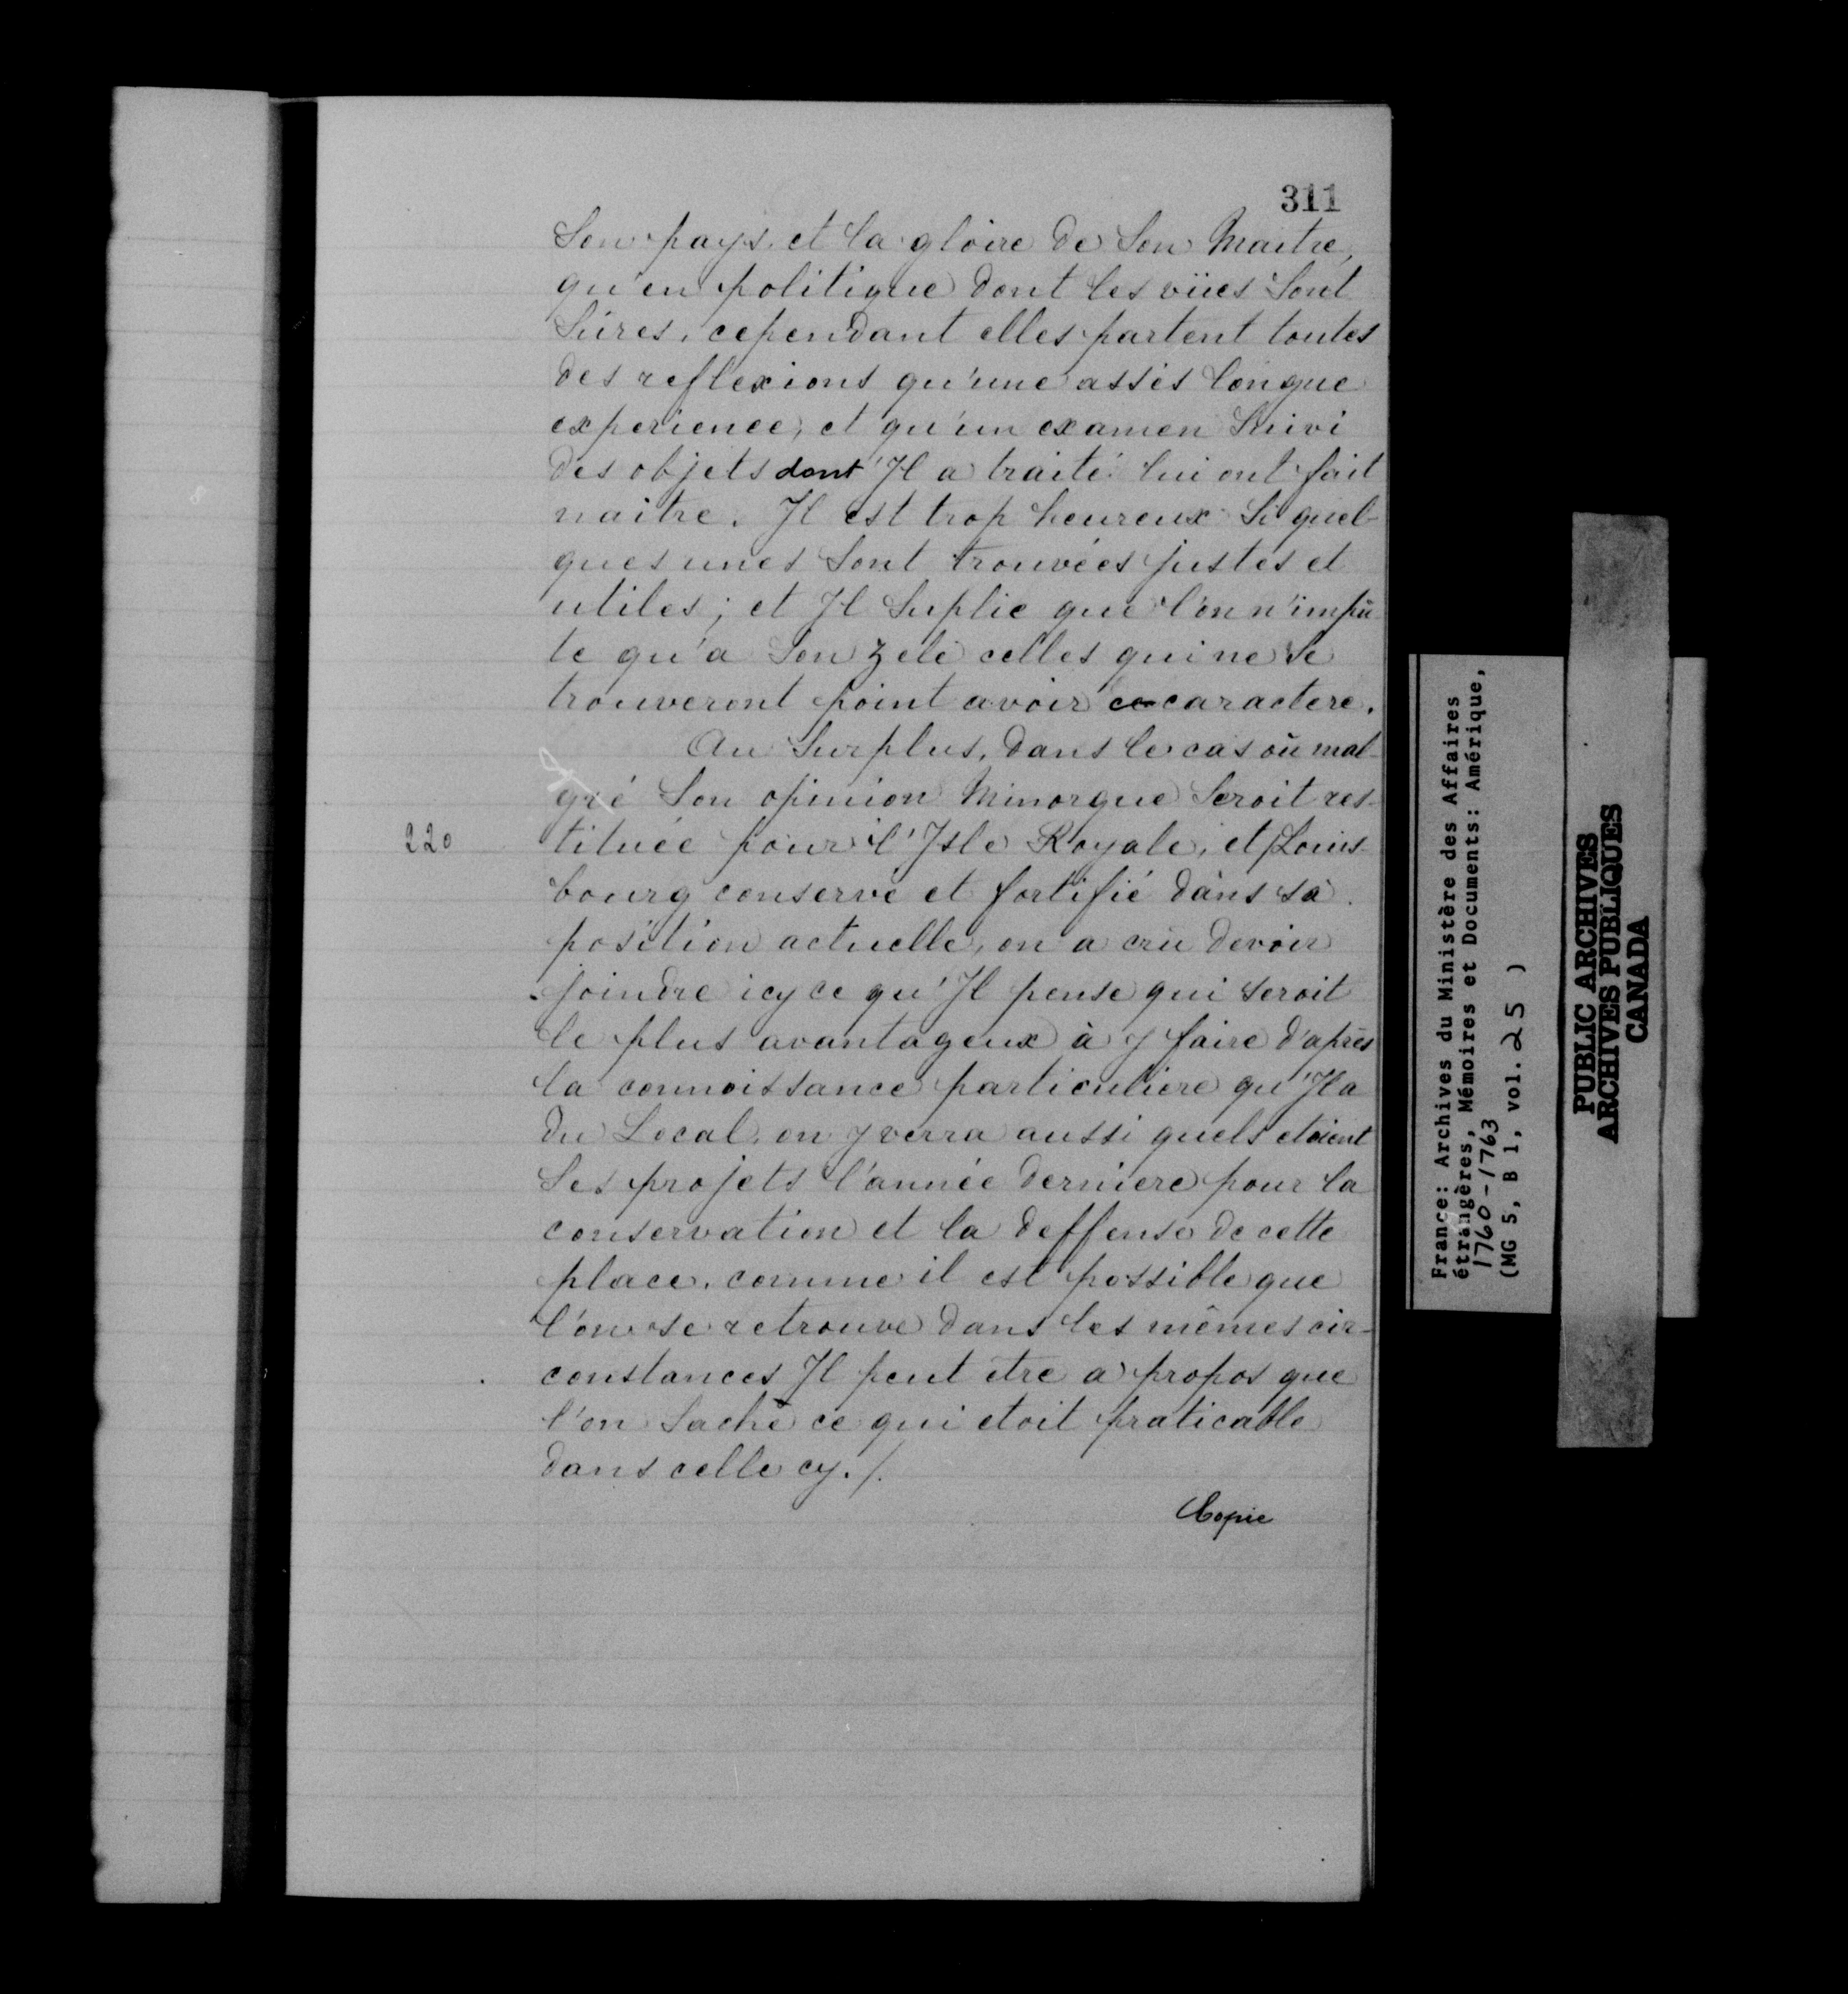 311
Son pays et la gloire de Son Maitre,
qu'en politique dont les vües Sont
Sûres, cependant elles partent toutes
des reflexions qu'une assés longue
experience, et qu'un examen Suivi
des objets dont Il a traité lui ont fait
naitre. Il est trop heureux Si quel-
ques unes Sont trouvées justes et
utiles; et Il Suplie que l'on n'impû
te qu'a Son zele celles qui ne Se
trouveront point avoir ce caractere.
Au Surplus, dans le cas où mal-
gré Son opinion Minorque Seroit res-
220
tituée pour l'Isle Royale, et Louis-
bourg conservé et fortifié dans sa
position actuelle, on a crû devoir
joindre icy ce qu'Il pense qui seroit
le plus avantageux à y faire d'après
la connoissance particuliere qu'Il a
du Local, on y verra aussi quels etoient
Ses projets l'année derniere pour la
conservation et la deffense de cette
place. comme il est possible que
l'on se retrouve dans les mêmes cir-
constances Il peut être a propos que
l'on Sache ce qui etoit praticable
dans celle cy./.
Copie
France: Archives du Ministère des Affaires
étrangères, Mémoires et Documents: Amérique,
1760-1763
(MG 5, B 1, vol. 25 )
PUBLIC ARCHIVES
ARCHIVES PUBLIQUES
CANADA